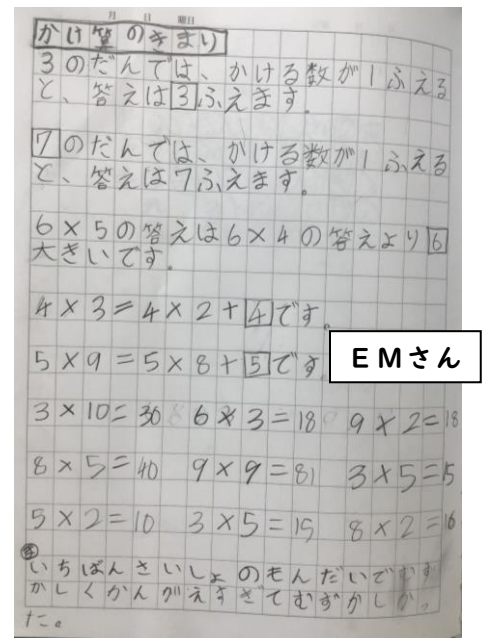 月 日 曜日
かけ算のきまり
3のだんでは、かける数が1ふえる
と、答えは3ふえます。
7のだんでは、かける数が1ふえる
と、答えは7ふえます。
6×5の答えは6×4の答えより6
大きいです。
4×3=4×2+4です。
5×9=5×8+5です
EMさん
3×10=30 6×3=18 9×2=18
8×5=40 9×9=81 3×5=15
5×2=10 3×5=15 8×2=16
いちばんさいしょのもんだいでむず
かしくかんがえすぎてむずかしかっ
た。